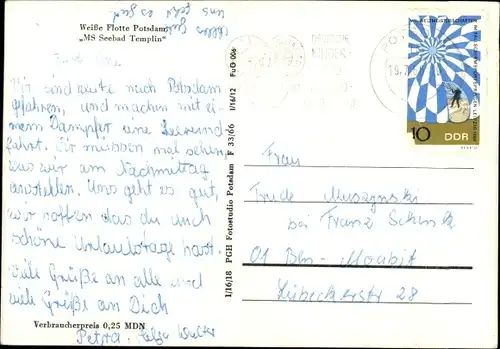 Weiße Flotte Potsdam
„MS Seebad Templin“
uns geht es gut
Wir sind heute nach Potsdam
gefahren, und machen mit ei-
nem Dampfer eine Seerund
fahrt. Wir müssen mal sehen
was wir am Nachmittag
anstellen. Uns geht es gut,
wir hoffen das du auch
schöne Urlaubstage hast.
Viele Grüße an alle und
viele Grüße an Dich
Petra
Verbraucherpreis 0,25 MDN
I/16/18 PGH Fotostudio Potsdam F 33/66 I/16/12 FuG 006
10
DDR
Frau
Trude Muszynski
bei Franz Schenk
01 Bln-Moabit
Lübeckerstr 28